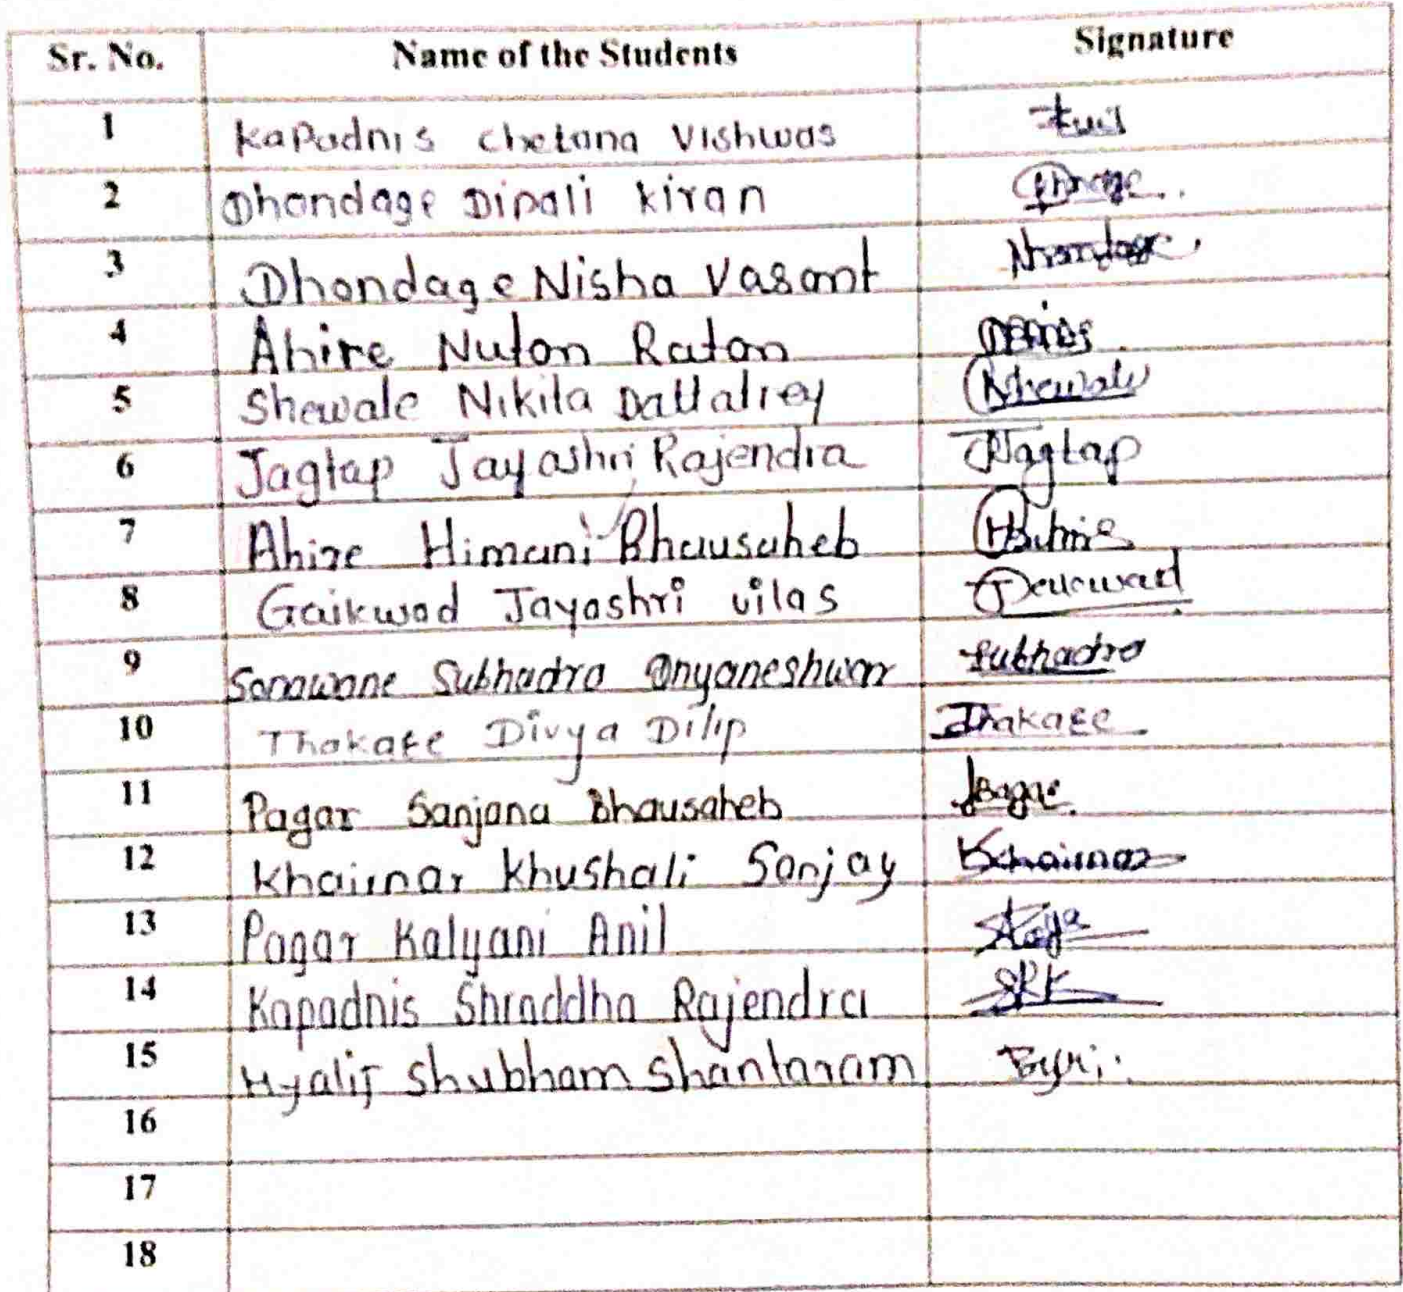 Sr. No. Name of the Students Signature
1 Kapadnis Chetana Vishwas
2 Dhondage Dipali Kiran
3 Dhondage Nisha Vasant
4 Ahire Nutan Ratan
5 Shewale Nikita Dattatrey Nshewale
6 Jagtap Jayashri Rajendra Jagtap
7 Ahire Himani Bhausaheb
8 Gaikwad Jayashri vilas
9 Sonawane Subhadra Dnyaneshwar Subhadra
10 Thakare Divya Dilip Thakare
11 Pagar Sanjana Bhausaheb
12 Khairnar Khushali Sanjay Khairnar
13 Pagar Kalyani Anil
14 Kapadnis Shraddha Rajendra SRK
15 Hyalij Shubham Shantaram
16
17
18